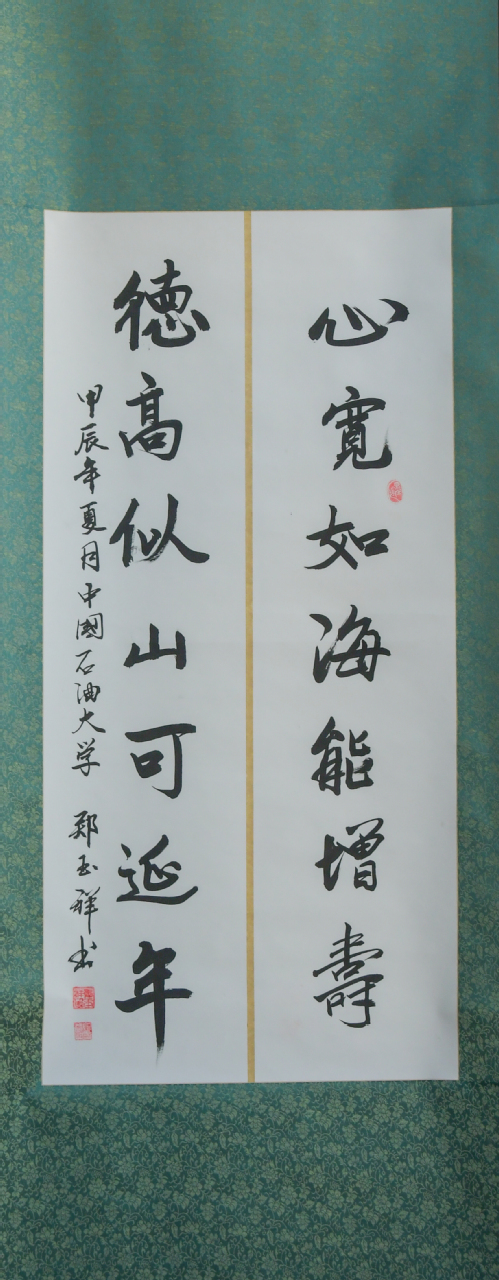 心寬如海能增壽
德高似山可延年
甲辰年夏月中國石油大学 郑玉祥书